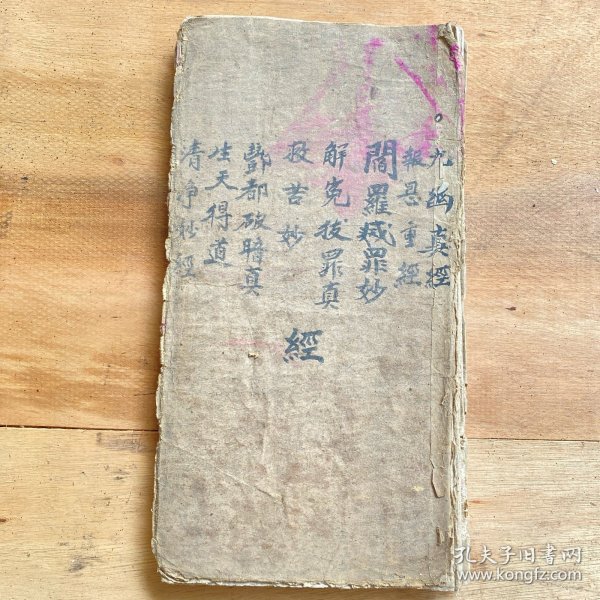 九幽真經
報恩重經
閻羅滅罪妙
解寃拔罪真
拔苦妙
酆都破暗真
生天得道
清净妙經
經
孔夫子旧书网
www.kongfz.com